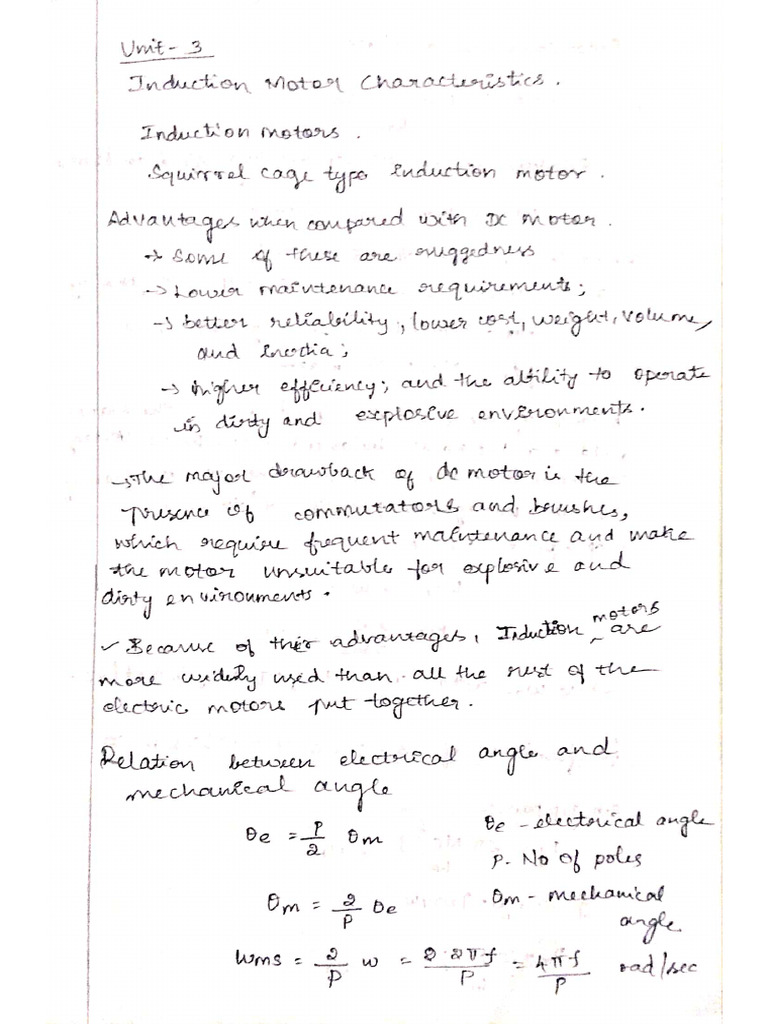 Unit - 3
Induction Motor Characteristics.
Induction motors.
Squirrel cage type induction motor.
Advantages when compared with DC motor.
→ Some of these are ruggedness
→ Lower maintenance requirements;
→ better reliability, lower cost, weight, volume,
and inertia;
→ higher efficiency; and the ability to operate
in dirty and explosive environments.
→ The major drawback of dc motor is the
presence of commutators and brushes,
which require frequent maintenance and make
the motor unsuitable for explosive and
dirty environments.
✓ Because of their advantages, Induction motors are
more widely used than all the rest of the
electric motors put together.
Relation between electrical angle and
mechanical angle
θe = P/2 θm
θe - electrical angle
P. No of poles
θm = 2/P θe
θm - mechanical
angle
ωms = 2/P ω = 2 2πf/P = 4πf/P rad/sec